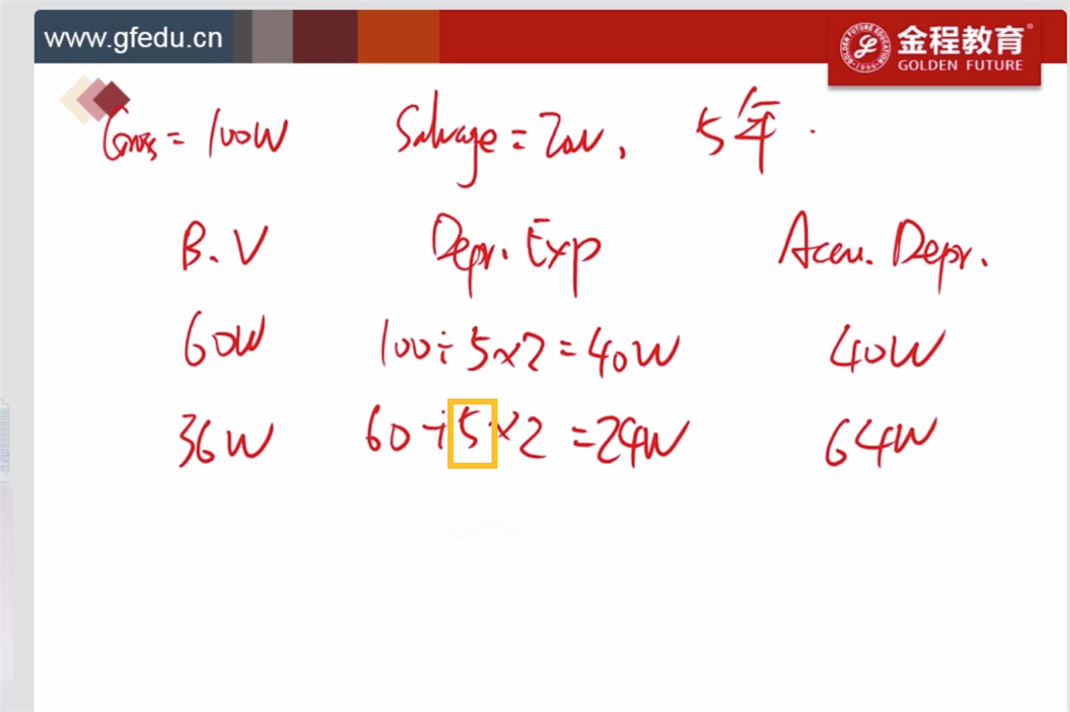 www.gfedu.cn
金程教育®
GOLDEN FUTURE
Gross = 100W Salvage = 20W, 5年.
B.V Depr. Exp Accu. Depr.
60W 100÷5×2=40W 40W
36W 60÷5×2=24W 64W